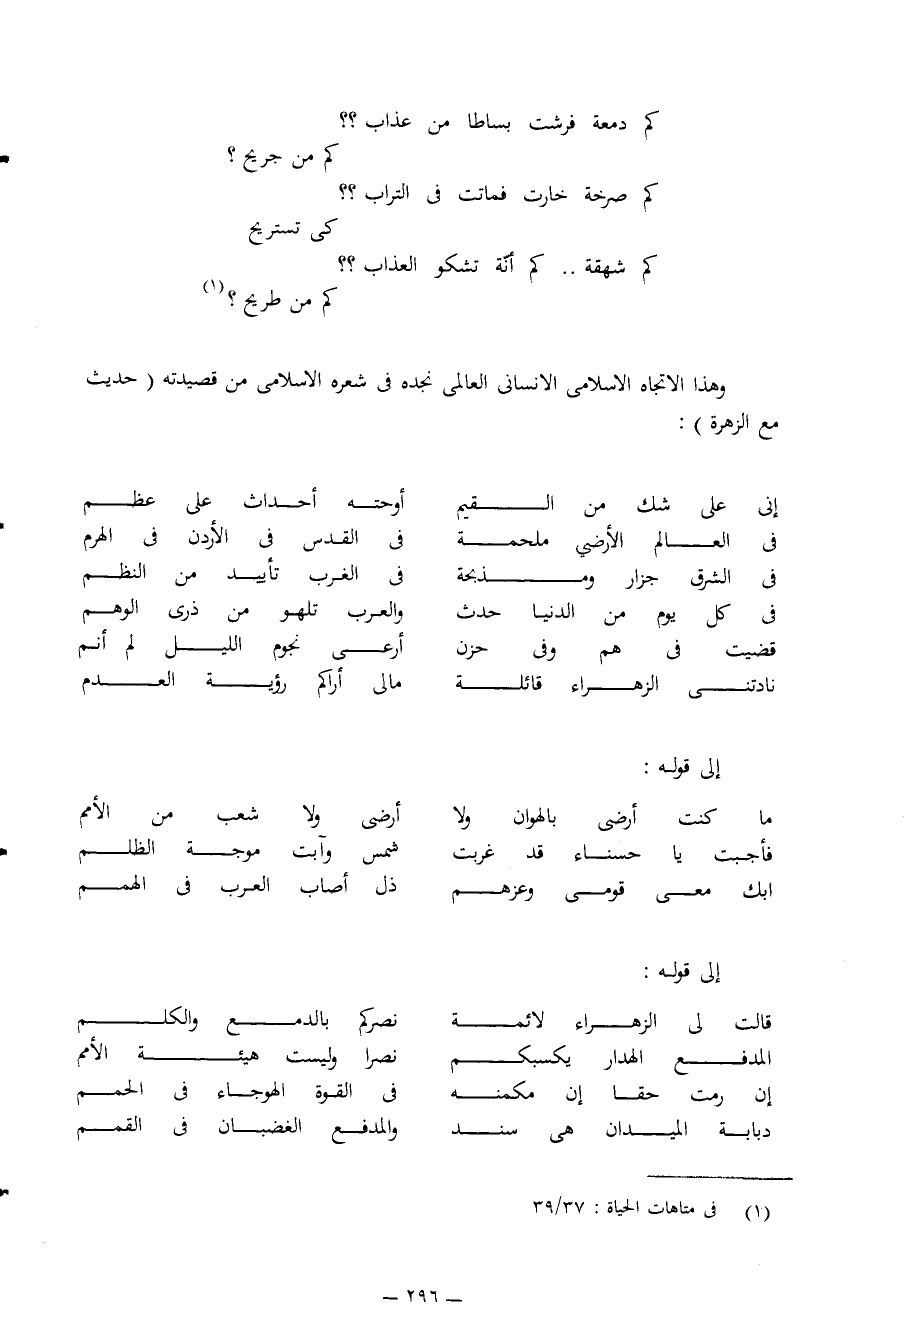 كم دمعة فرشت بساطا من عذاب ؟؟
كم من جريح ؟
كم صرخة خارت فماتت فى التراب ؟؟
كى تستريح
كم شهقة .. كم أنّة تشكو العذاب ؟؟
كم من طريح ؟(١)
وهذا الاتجاه الاسلامى الانسانى العالمى نجده فى شعره الاسلامى من قصيدته ( حديث
مع الزهرة ) :
إنى على شك من القيم أوحته أحداث على عظم
فى العالم الأرضي ملحمة فى القدس فى الأردن فى الهرم
فى الشرق جزار ومذبحة فى الغرب تأييد من النظم
فى كل يوم من الدنيا حدث والعرب تلهو من ذرى الوهم
قضيت فى هم وفى حزن أرعى نجوم الليل لم أنم
نادتنى الزهراء قائلة مالى أراكم رؤية العدم
إلى قوله :
ما كنت أرضى بالهوان ولا أرضى ولا شعب من الأمم
فأجبت يا حسناء قد غربت شمس وآبت موجة الظلم
ابك معى قومى وعزهم ذل أصاب العرب فى الهمم
إلى قوله :
قالت لى الزهراء لائمة نصركم بالدمع والكلم
المدفع الهدار يكسبكم نصرا وليست هيئة الأمم
إن رمت حقا إن مكمنه فى القوة الهوجاء فى الحمم
دبابة الميدان هى سند والمدفع الغضبان فى القمم
(١) فى متاهات الحياة : ٣٩/٣٧
— ٢٩٦ —